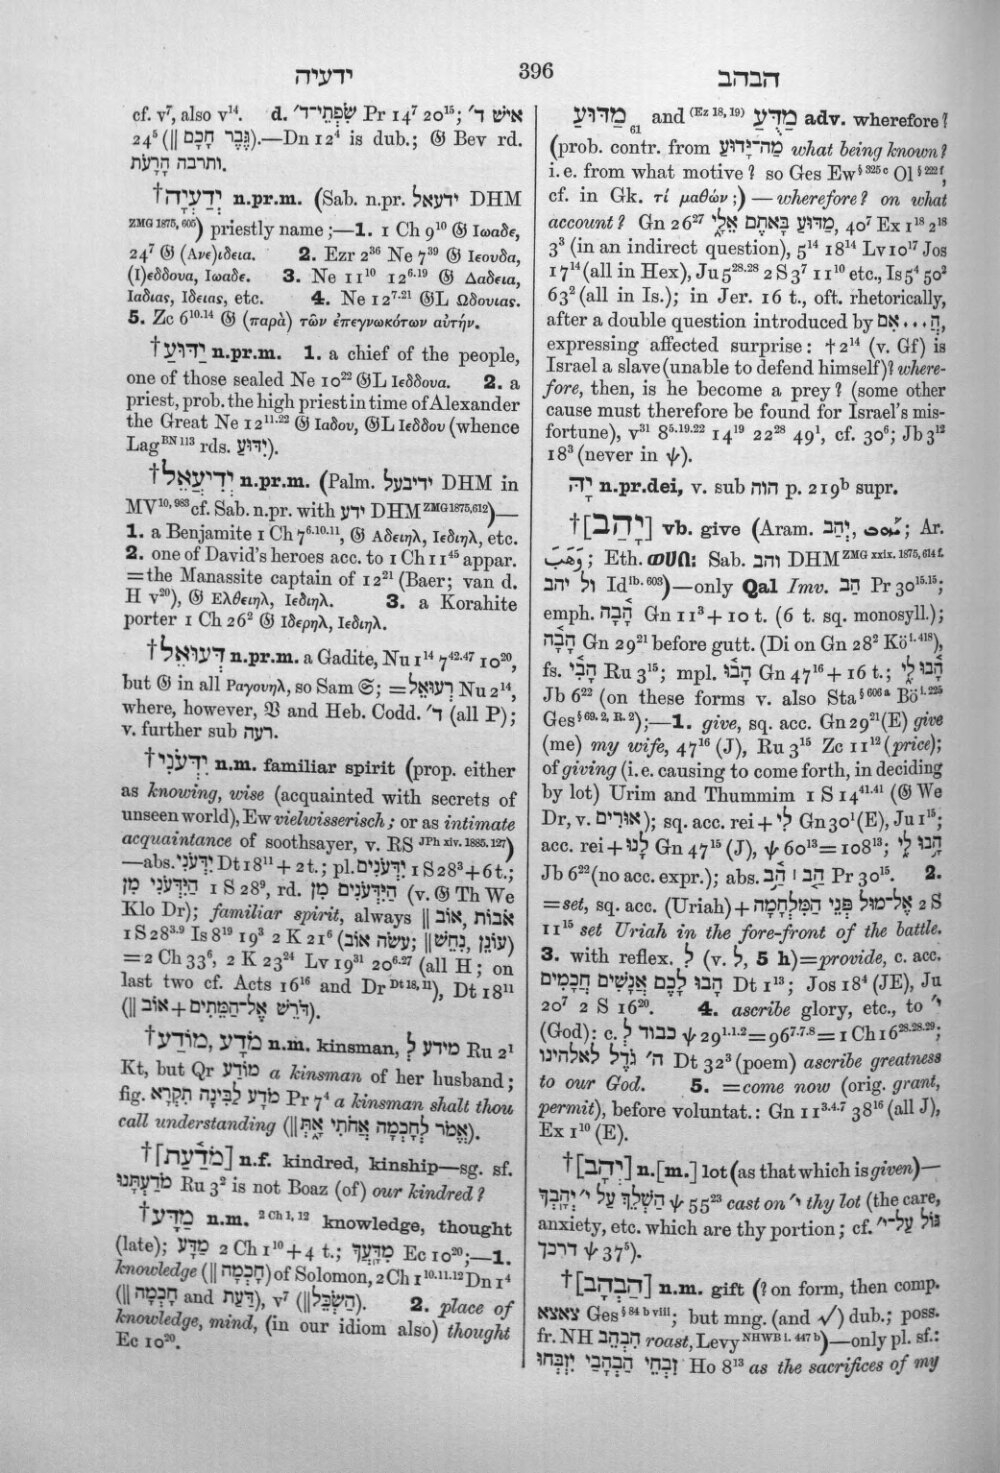 ידעיה
396
הבהב
cf. v⁷, also v¹⁴. d. שִׂפְתֵי־ד׳ Pr 14⁷ 20¹⁵; אישׁ ד׳
24⁵ (‖ גֶּבֶר חָכָם).—Dn 12⁴ is dub.; 𝔊 Bev rd.
ותרבה הָרָעֹת.
†יְדַעְיָה n.pr.m. (Sab. n.pr. ידעאל DHM
ZMG 1875, 605) priestly name;—1. 1 Ch 9¹⁰ 𝔊 Ιωαδε,
24⁷ 𝔊 (Ανε)ιδεια. 2. Ezr 2³⁶ Ne 7³⁹ 𝔊 Ιεουδα,
(Ι)εδδουα, Ιωαδε. 3. Ne 11¹⁰ 12⁶·¹⁹ 𝔊 Δαδεια,
Ιαδιας, Ιδειας, etc. 4. Ne 12⁷·²¹ 𝔊L Ωδουιας.
5. Zc 6¹⁰·¹⁴ 𝔊 (παρὰ) τῶν ἐπεγνωκότων αὐτήν.
†יַדּוּעַ n.pr.m. 1. a chief of the people,
one of those sealed Ne 10²² 𝔊L Ιεδδουα. 2. a
priest, prob. the high priest in time of Alexander
the Great Ne 12¹¹·²² 𝔊 Ιαδου, 𝔊L Ιεδδου (whence
Lag BN 113 rds. יִדּוּעַ).
†יְדִיעֲאֵל n.pr.m. (Palm. ידיבעל DHM in
MV¹⁰, ⁹⁸³ cf. Sab. n.pr. with ידע DHM ZMG 1875, 612)—
1. a Benjamite 1 Ch 7⁶·¹⁰·¹¹, 𝔊 Αδειηλ, Ιεδιηλ, etc.
2. one of David's heroes acc. to 1 Ch 11⁴⁵ appar.
=the Manassite captain of 12²¹ (Baer; van d.
H v²⁰), 𝔊 Ελθειηλ, Ιεδιηλ. 3. a Korahite
porter 1 Ch 26² 𝔊 Ιδερηλ, Ιεδιηλ.
†דְּעוּאֵל n.pr.m. a Gadite, Nu 1¹⁴ 7⁴²·⁴⁷ 10²⁰,
but 𝔊 in all Ραγουηλ, so Sam 𝔖; =רְעוּאֵל Nu 2¹⁴,
where, however, 𝔙 and Heb. Codd. ד׳ (all P);
v. further sub רעה.
†יִדְּעֹנִי n.m. familiar spirit (prop. either
as knowing, wise (acquainted with secrets of
unseen world), Ew vielwisserisch; or as intimate
acquaintance of soothsayer, v. RS JPh xiv. 1885, 127)
—abs. יִדְּעֹנִי Dt 18¹¹ + 2 t.; pl. יִדְּעֹנִים 1 S 28³ + 6 t.;
הַיִּדְּעֹנִי מִן 1 S 28⁹, rd. הַיִּדְּעֹנִים מִן (v. 𝔊 Th We
Klo Dr); familiar spirit, always ‖ אוֹב, אֹבוֹת
1 S 28³·⁹ Is 8¹⁹ 19³ 2 K 21⁶ (עוֹנֵן, נִחֵשׁ‖; עשׂה אוֹב)
=2 Ch 33⁶, 2 K 23²⁴ Lv 19³¹ 20⁶·²⁷ (all H; on
last two cf. Acts 16¹⁶ and Dr Dt 18, 11), Dt 18¹¹
(‖ דֹּרֵשׁ אֶל־הַמֵּתִים + אוֹב).
†מוֹדַע, מֹדָע n.m. kinsman, מידע לְ Ru 2¹
Kt, but Qr מוֹדַע a kinsman of her husband;
fig. מֹדָע לַבִּינָה תִקְרָא Pr 7⁴ a kinsman shalt thou
call understanding (‖ אֱמֹר לַחָכְמָה אֲחֹתִי אָתְּ).
†[מֹדַעַת] n.f. kindred, kinship—sg. sf.
מֹדַעְתָּנוּ Ru 3² is not Boaz (of) our kindred?
†מַדָּע n.m. 2 Ch 1, 12 knowledge, thought
(late); מַדָּע 2 Ch 1¹⁰ + 4 t.; מַדָּעֲךָ Ec 10²⁰;—1.
knowledge (‖ חָכְמָה) of Solomon, 2 Ch 1¹⁰·¹¹·¹² Dn 1⁴
(‖ חָכְמָה and דַּעַת), v⁷ (‖ הַשְׂכֵּל). 2. place of
knowledge, mind, (in our idiom also) thought
Ec 10²⁰.
מַדּוּעַ 61 and (Ez 18, 19) מַדֻּעַ adv. wherefore?
(prob. contr. from מַה־יָּדוּעַ what being known?
i.e. from what motive? so Ges Ew § 325 c Ol § 222 f,
cf. in Gk. τί μαθών;) — wherefore? on what
account? Gn 26²⁷ מַדּוּעַ בָּאתֶם אֵלָי, 40⁷ Ex 1¹⁸ 2¹⁸
3³ (in an indirect question), 5¹⁴ 18¹⁴ Lv 10¹⁷ Jos
17¹⁴ (all in Hex), Ju 5²⁸·²⁸ 2 S 3⁷ 11¹⁰ etc., Is 5⁴ 50²
63² (all in Is.); in Jer. 16 t., oft. rhetorically,
after a double question introduced by הֲ...אִם,
expressing affected surprise: †2¹⁴ (v. Gf) is
Israel a slave (unable to defend himself)? where-
fore, then, is he become a prey? (some other
cause must therefore be found for Israel's mis-
fortune), v³¹ 8⁵·¹⁹·²² 14¹⁹ 22²⁸ 49¹, cf. 30⁶; Jb 3¹²
18³ (never in ψ).
יָהּ n.pr.dei, v. sub הוה p. 219ᵇ supr.
†[יָהַב] vb. give (Aram. יְהַב, ; Ar.
وَهَبَ; Eth. ወሀበ: Sab. והב DHM ZMG xxix. 1875, 614 f.
ול יהב Id ib. 603)—only Qal Imv. הַב Pr 30¹⁵·¹⁵;
emph. הָבָה Gn 11³ + 10 t. (6 t. sq. monosyll.);
הָבָה Gn 29²¹ before gutt. (Di on Gn 28² Kö I. 418),
fs. הָבִי Ru 3¹⁵; mpl. הָבוּ Gn 47¹⁶ + 16 t.; הָבוּ לִי
Jb 6²² (on these forms v. also Sta § 606 a Bö I. 225
Ges § 69. 2, R. 2);—1. give, sq. acc. Gn 29²¹ (E) give
(me) my wife, 47¹⁶ (J), Ru 3¹⁵ Zc 11¹² (price);
of giving (i.e. causing to come forth, in deciding
by lot) Urim and Thummim 1 S 14⁴¹·⁴¹ (𝔊 We
Dr, v. אוּרִים); sq. acc. rei + לִי Gn 30¹ (E), Ju 1¹⁵;
acc. rei + לָנוּ Gn 47¹⁵ (J), ψ 60¹³=108¹³; הָבוּ לִי
Jb 6²² (no acc. expr.); abs. הַב ׀ הַב Pr 30¹⁵. 2.
=set, sq. acc. (Uriah) + אֶל־מוּל פְּנֵי הַמִּלְחָמָה 2 S
11¹⁵ set Uriah in the fore-front of the battle.
3. with reflex. לְ (v. לְ, 5 h)=provide, c. acc.
הָבוּ לָכֶם אֲנָשִׁים חֲכָמִים Dt 1¹³; Jos 18⁴ (JE), Ju
20⁷ 2 S 16²⁰. 4. ascribe glory, etc., to י׳
(God): c. כבוד לְ ψ 29¹·¹·²=96⁷·⁷·⁸=1 Ch 16²⁸·²⁸·²⁹;
ה׳ גֹדֶל לאלהינו Dt 32³ (poem) ascribe greatness
to our God. 5. =come now (orig. grant,
permit), before voluntat.: Gn 11³·⁴·⁷ 38¹⁶ (all J),
Ex 1¹⁰ (E).
†[יְהָב] n.[m.] lot (as that which is given)—
הַשְׁלֵךְ עַל י׳ יְהָבְךָ ψ 55²³ cast on י׳ thy lot (the care,
anxiety, etc. which are thy portion; cf. גּוֹל עַל־י׳
דרכך ψ 37⁵).
†[הַבְהָב] n.m. gift (? on form, then comp.
צאצא Ges § 84 b viii; but mng. (and √) dub.; poss.
fr. NH הִבְהֵב roast, Levy NHWB I. 447 b)—only pl. sf.:
זִבְחֵי הַבְהָבַי יִזְבְּחוּ Ho 8¹³ as the sacrifices of my